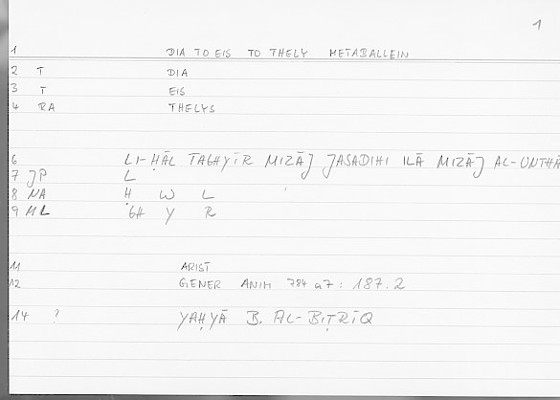 1
1 DIA TO EIS TO THELY METABALLEIN
2 T DIA
3 T EIS
4 RA THELYS
6 LI-ḤĀL TAGHYĪR MIZĀJ JASADIHI ILĀ MIZĀJ AL-UNTHĀ
7 JP L
8 NA Ḥ W L
9 ML GH Y R
11 ARIST
12 GENER ANIM 784 a7 : 187.2
14 ? YAḤYĀ B. AL-BIṬRĪQ